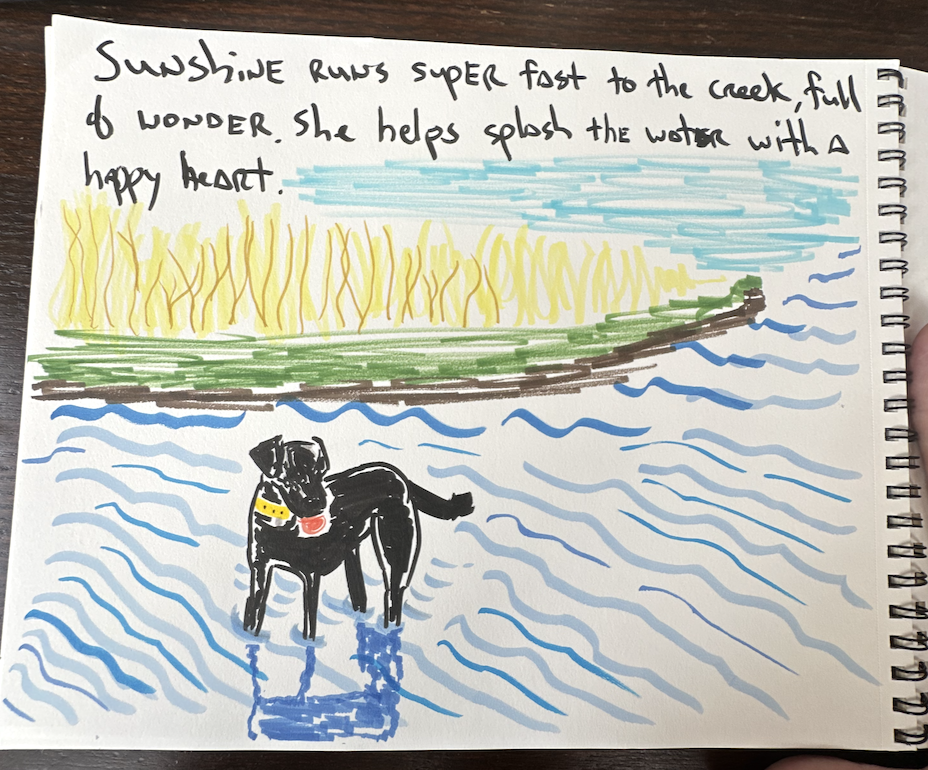 Sunshine runs super fast to the creek, full
of wonder. She helps splash the water with a
happy heart.